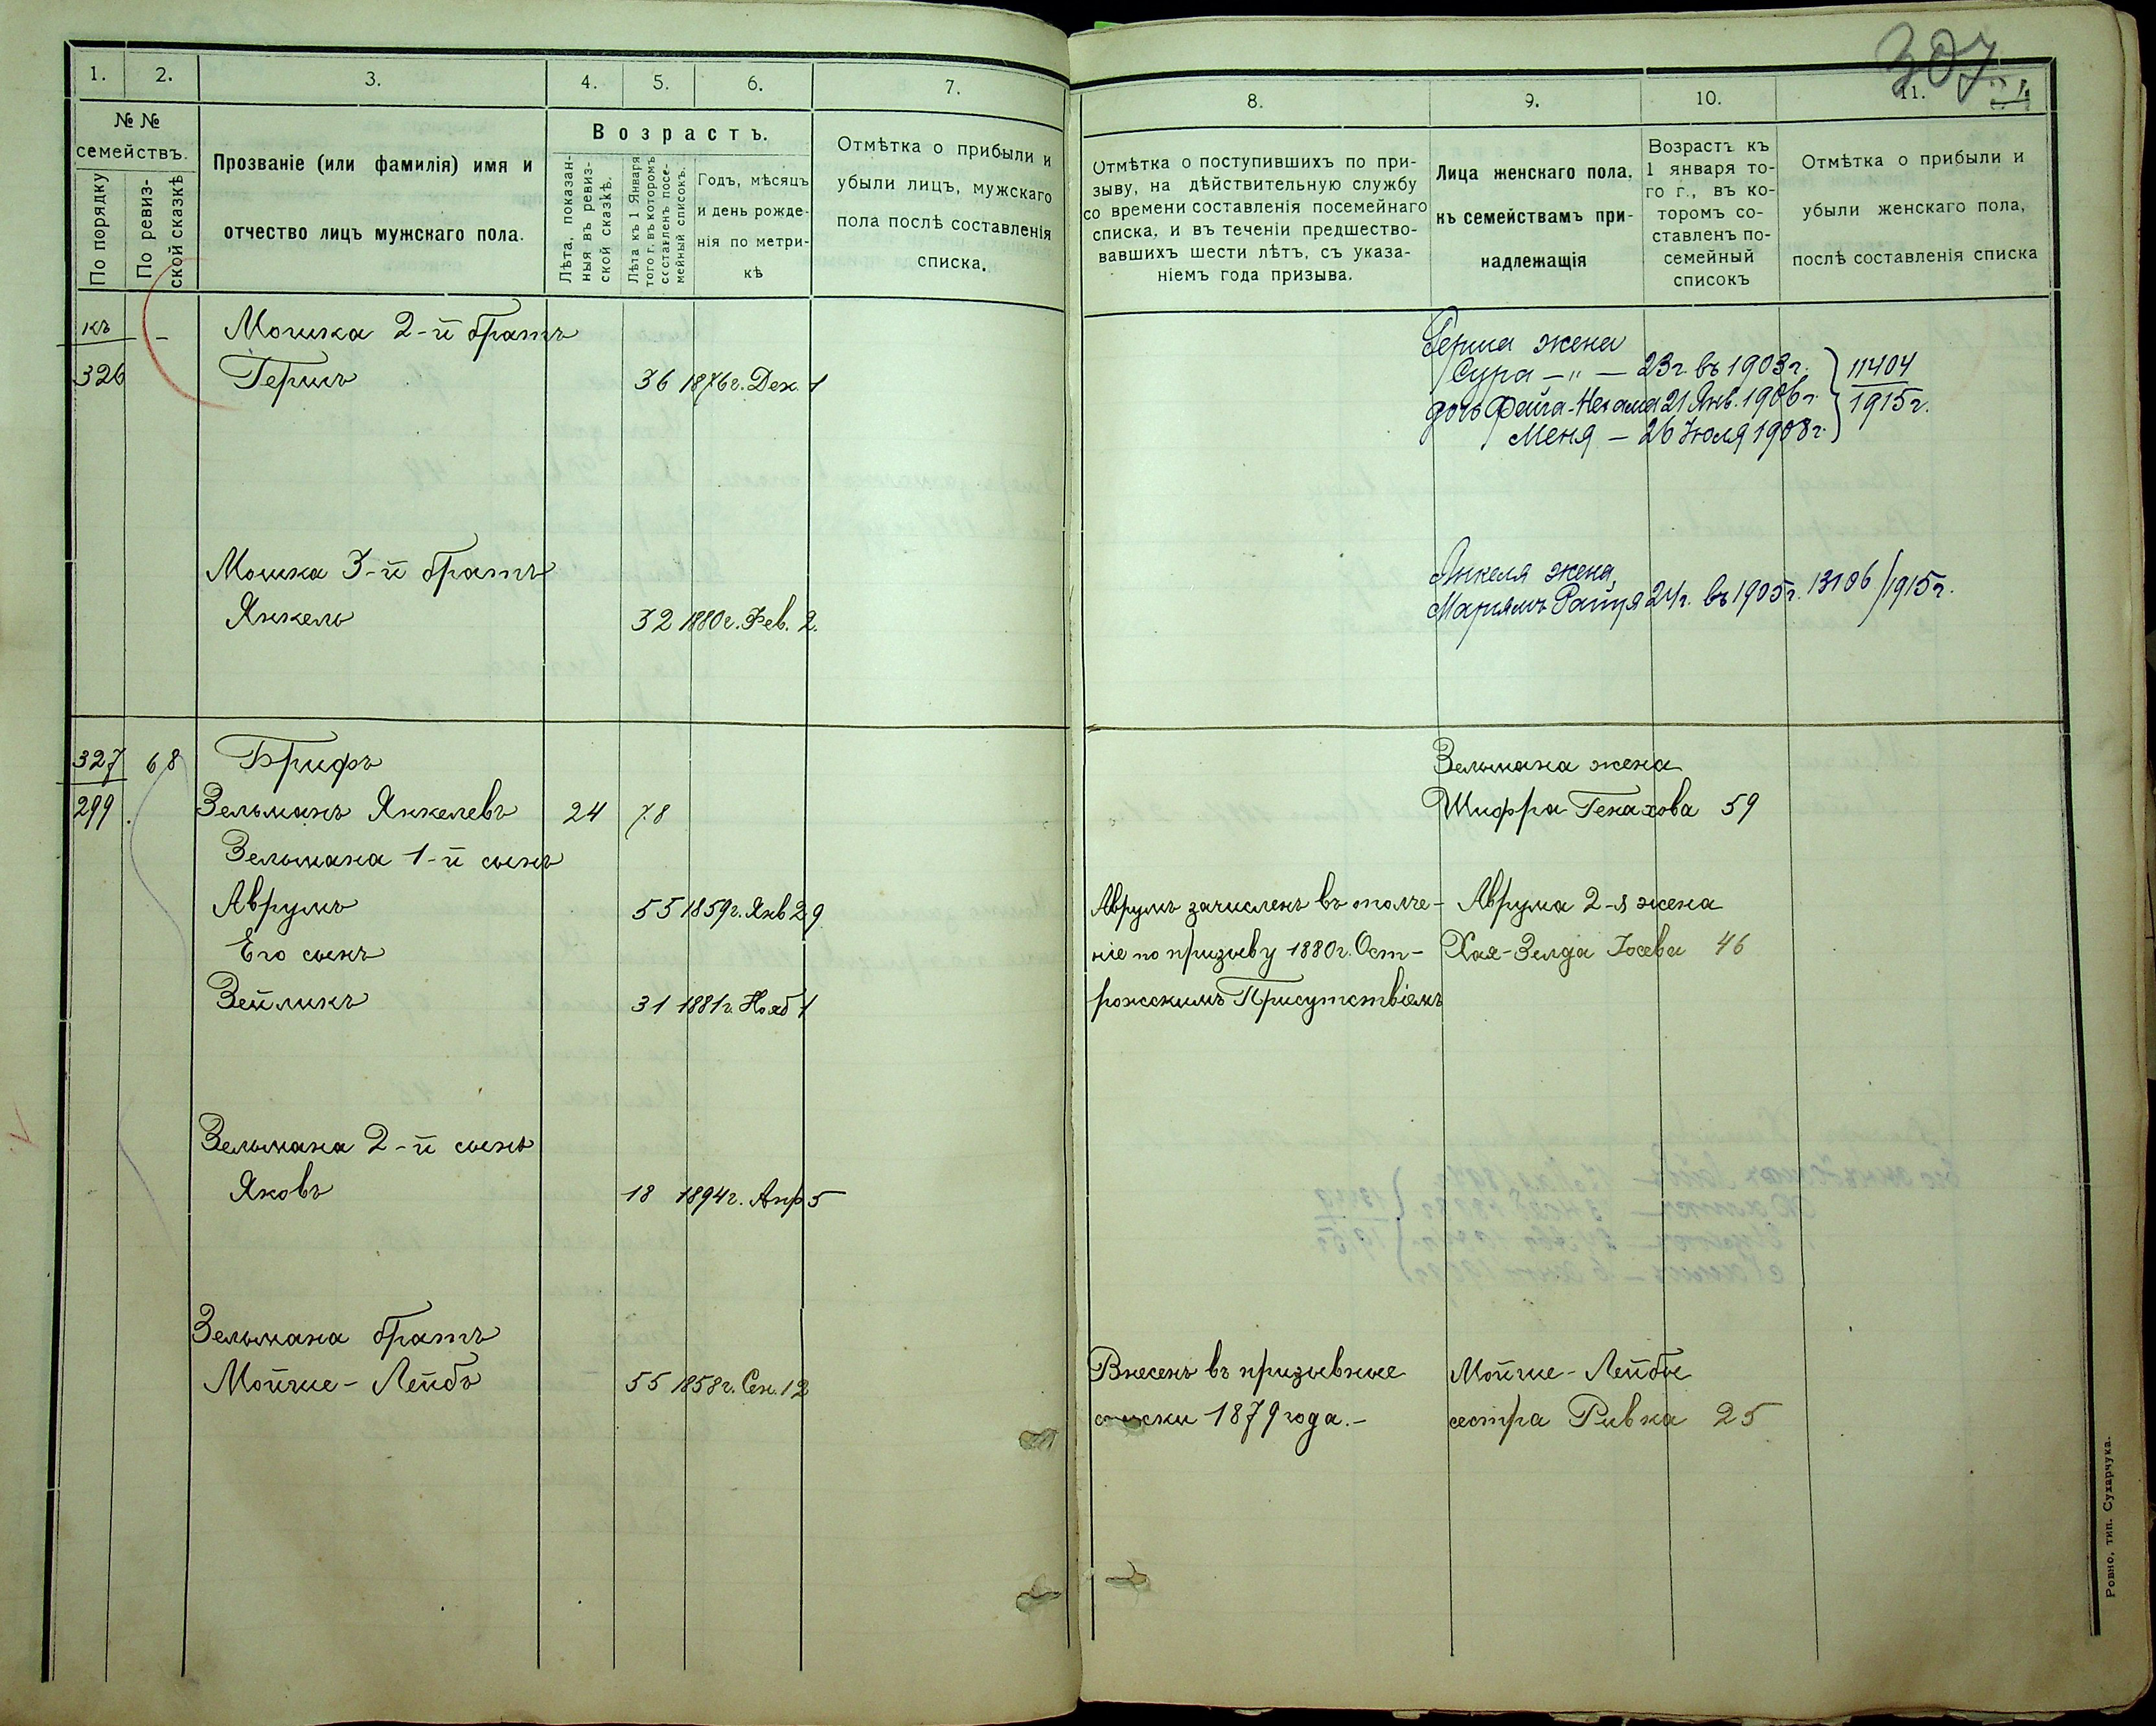 307
1. 2. 3. 4. 5. 6. 7.
№ №
семействъ.
По порядку
По ревиз-
ской сказкѣ
Прозваніе (или фамилія) имя и
отчество лицъ мужскаго пола.
Возрастъ.
Лѣта, показан-
ныя въ ревиз-
ской сказкѣ.
Лѣта къ 1 Января
того г. въ которомъ
составленъ посе-
мейный списокъ.
Годъ, мѣсяцъ
и день рожде-
нія по метри-
кѣ
Отмѣтка о прибыли и
убыли лицъ, мужскаго
пола послѣ составленія
списка.
къ
326
Мошка 2-й братъ
Гершъ 36 1876г. Дек. 1
Мошка 3-й братъ
Янкель 32 1880г. Фев. 2.
327 68 Брифъ
299. Зельманъ Янкелевъ 24 78
Зельмана 1-й сынъ
Аврумъ 55 1859г. Янв 29
Его сынъ
Зейликъ 31 1881г. Нояб 1
Зельмана 2-й сынъ
Яковъ 18 1894г. Апр 5
Зельмана братъ
Мойше-Лейбъ 55 1858г. Сен. 12
8. 9. 10. 11.
Отмѣтка о поступившихъ по при-
зыву, на дѣйствительную службу
со времени составленія посемейнаго
списка, и въ теченіи предшество-
вавшихъ шести лѣтъ, съ указа-
ніемъ года призыва.
Лица женскаго пола,
къ семействамъ при-
надлежащія
Возрастъ къ
1 января то-
го г., въ ко-
торомъ со-
ставленъ по-
семейный
списокъ
Отмѣтка о прибыли и
убыли женскаго пола,
послѣ составленія списка
Герша жена
Сура —"— 23г. въ 1903г.
дочь Файга-Нехама 21 Янв. 1906г.
Меня — 26 Іюля 1908г.
11404
1915г.
Янкеля жена,
Марьямъ 24г. въ 1905г. 13106/1915г.
Зельмана жена
Шифра Генахова 59
Аврумъ зачисленъ въ ополче-
ніе по призыву 1880г. Ост-
рожскимъ Присутствіемъ
Аврума 2-я жена
Хая-Зелда Іосева 46
Внесенъ въ призывные
списки 1879 года.-
Мойше-Лейбы
сестра Ривка 25
Ровно, тип. Сухарчука.